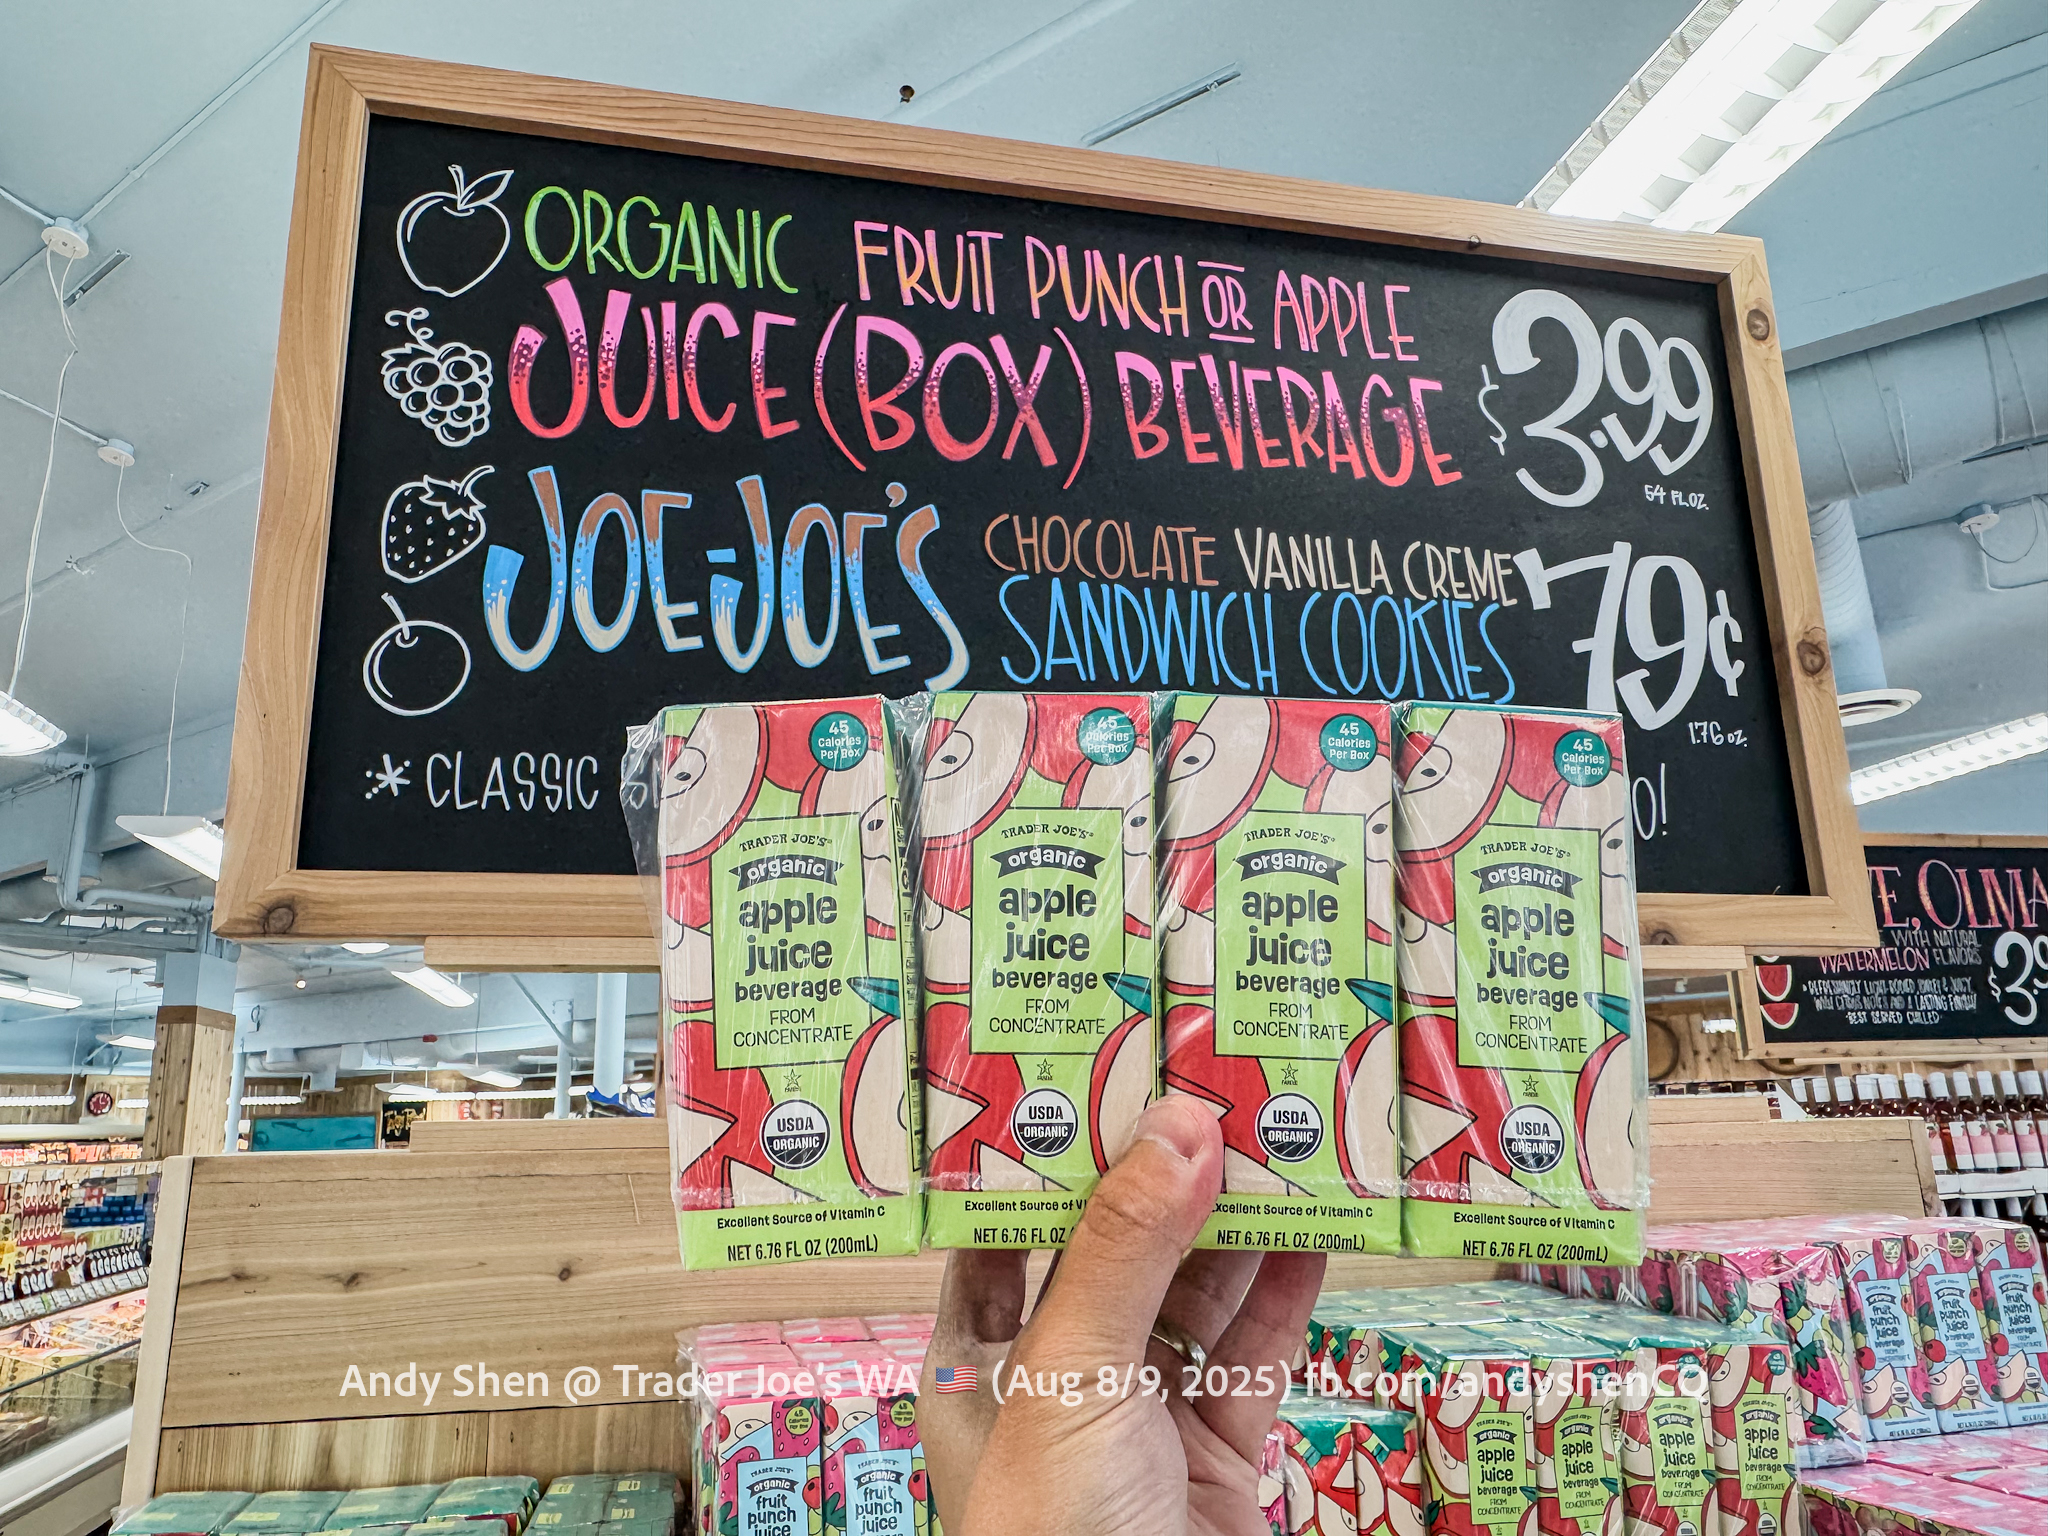 ORGANIC FRUIT PUNCH OR APPLE
JUICE (BOX) BEVERAGE
$3.99
54 FL.OZ.
JOE-JOE'S CHOCOLATE VANILLA CREME
SANDWICH COOKIES
79¢
1.76 OZ.
* CLASSIC
O!
45
Calories
Per Box
TRADER JOE'S
organic
apple
juice
beverage
FROM
CONCENTRATE
USDA
ORGANIC
Excellent Source of Vitamin C
NET 6.76 FL OZ (200mL)
45
Calories
Per Box
TRADER JOE'S
organic
apple
juice
beverage
FROM
CONCENTRATE
USDA
ORGANIC
Excellent Source of Vi
NET 6.76 FL OZ
45
Calories
Per Box
TRADER JOE'S
organic
apple
juice
beverage
FROM
CONCENTRATE
USDA
ORGANIC
Excellent Source of Vitamin C
NET 6.76 FL OZ (200mL)
45
Calories
Per Box
TRADER JOE'S
organic
apple
juice
beverage
FROM
CONCENTRATE
USDA
ORGANIC
Excellent Source of Vitamin C
NET 6.76 FL OZ (200mL)
E, OLIVIA
WITH NATURAL
WATERMELON FLAVORS
$3.9
BEST SERVED CHILLED
Andy Shen @ Trader Joe's WA 🇺🇸 (Aug 8/9, 2025) fb.com/andyshenCQ
organic
fruit
punch
juice
organic
fruit
punch
juice
organic
apple
juice
beverage
organic
apple
juice
beverage
organic
apple
juice
beverage
organic
apple
juice
beverage
fruit
punch
juice
beverage
fruit
punch
juice
beverage
fruit
punch
juice
beverage